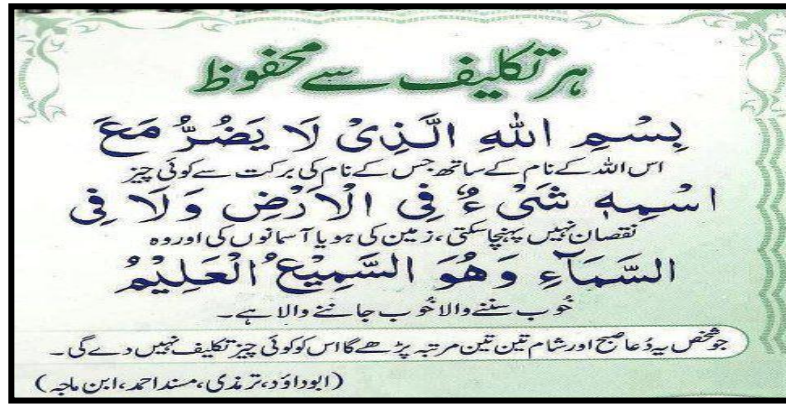 ہر تکلیف سے محفوظ
بِسْمِ اللهِ الَّذِیْ لَا یَضُرُّ مَعَ
اس اللہ کے نام کے ساتھ جس کے نام کی برکت سے کوئی چیز
اسْمِهٖ شَیْءٌ فِی الْاَرْضِ وَلَا فِی
نقصان نہیں پہنچا سکتی، زمین کی ہو یا آسمانوں کی اور وہ
السَّمَآءِ وَهُوَ السَّمِیْعُ الْعَلِیْمُ
خُوب سننے والا خُوب جاننے والا ہے۔
جو شخص یہ دُعا صبح اور شام تین تین مرتبہ پڑھے گا اس کو کوئی چیز تکلیف نہیں دے گی۔
(ابوداؤد، ترمذی، مسند احمد، ابن ماجہ)